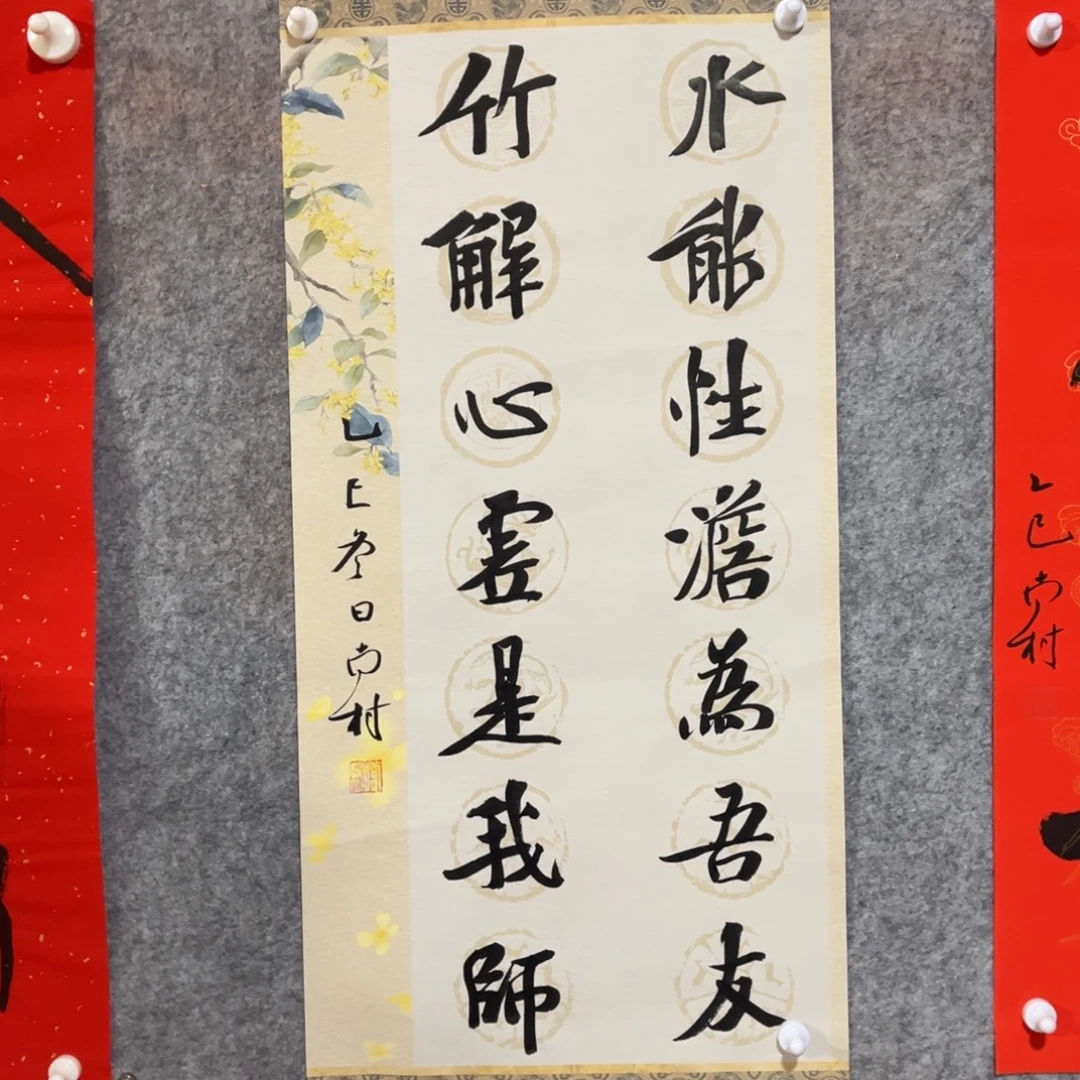 水能性澹為吾友
竹解心虛是我師
乙巳冬日尚村
乙巳尚村